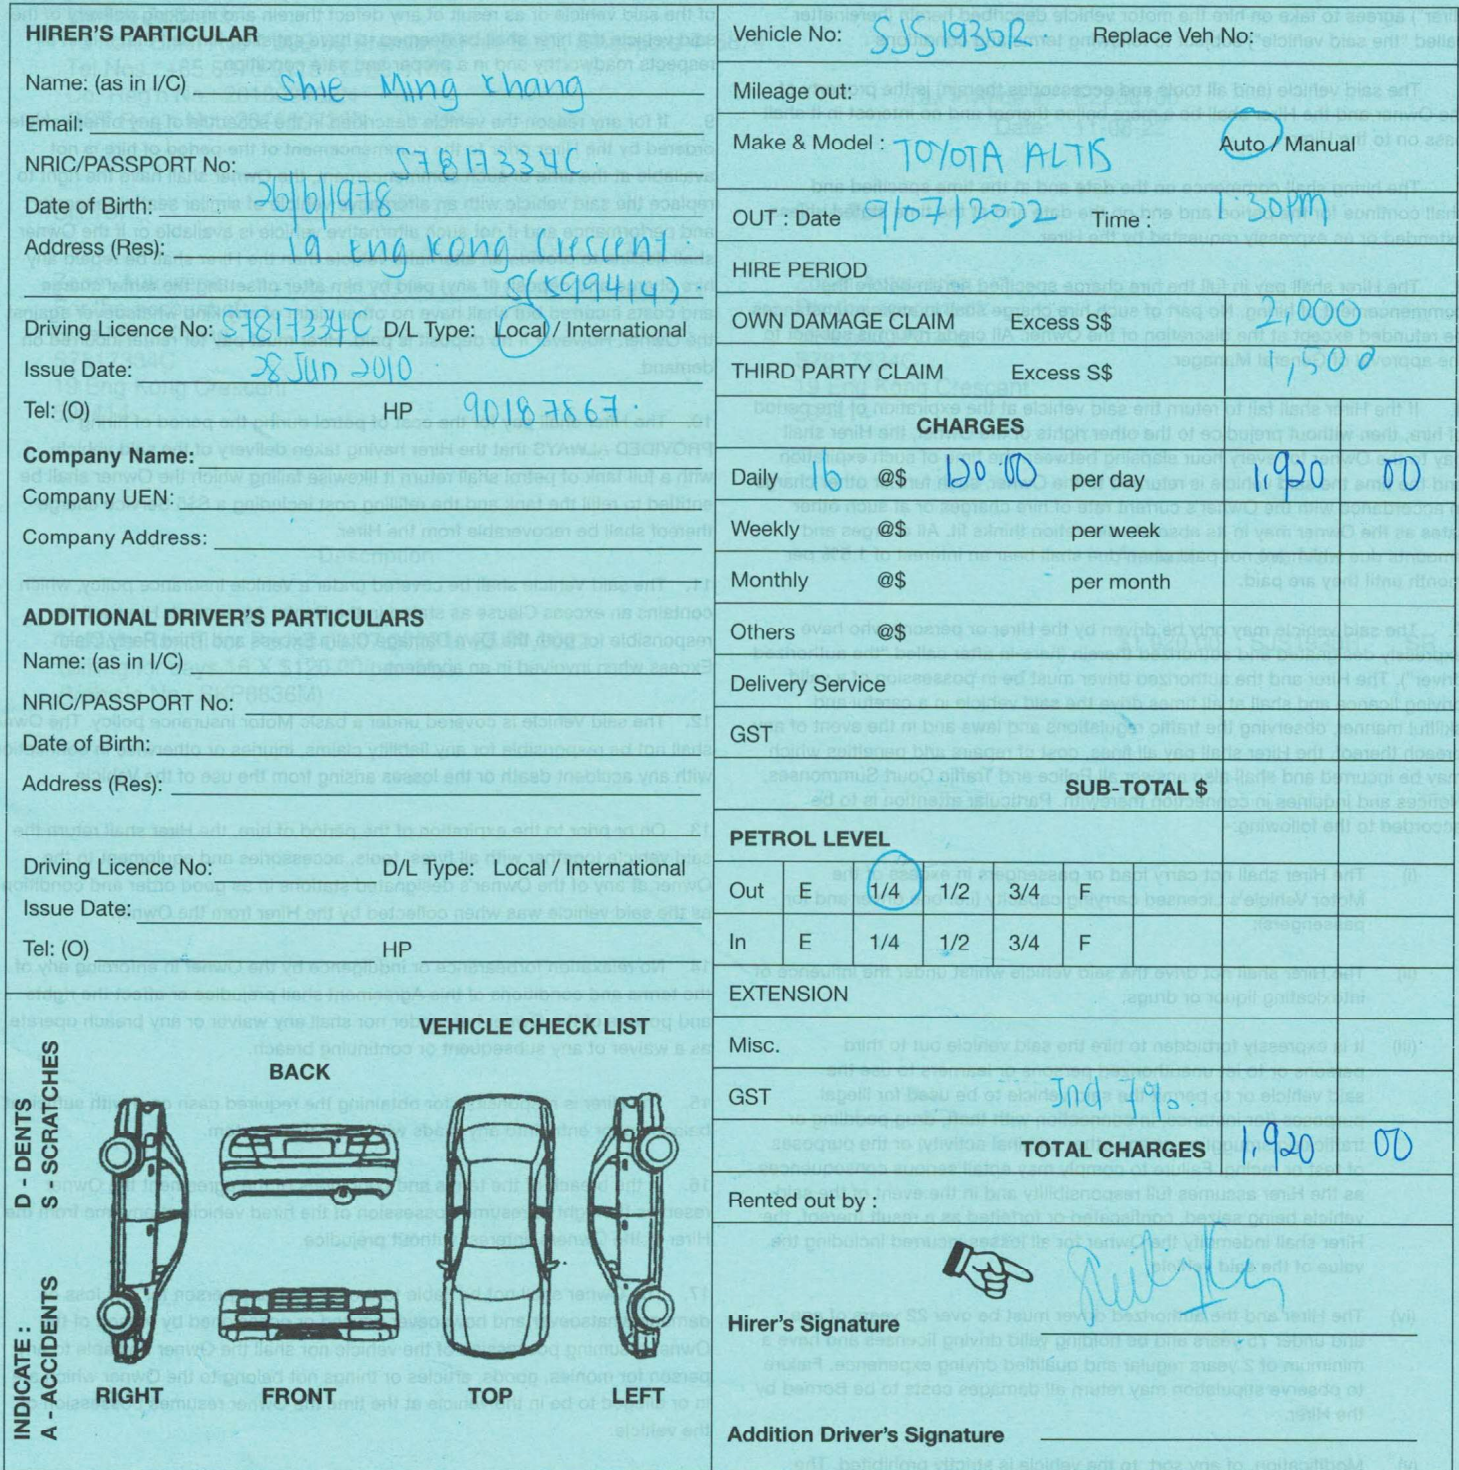 HIRER'S PARTICULAR
Name: (as in I/C) Shie Ming Khang
Email:
NRIC/PASSPORT No: S7817334C
Date of Birth: 26/6/1978
Address (Res): 19 Eng Kong Crescent
S(599414)
Driving Licence No: S7817334C D/L Type: Local / International
Issue Date: 28 Jun 2010
Tel: (O) HP 90187867
Company Name:
Company UEN:
Company Address:
ADDITIONAL DRIVER'S PARTICULARS
Name: (as in I/C)
NRIC/PASSPORT No:
Date of Birth:
Address (Res):
Driving Licence No: D/L Type: Local / International
Issue Date:
Tel: (O) HP
VEHICLE CHECK LIST
BACK
RIGHT FRONT TOP LEFT
INDICATE : D - DENTS
A - ACCIDENTS S - SCRATCHES
Vehicle No: Replace Veh No:
Mileage out:
Make & Model : TOYOTA ALTIS Auto / Manual
OUT : Date 9/07/2022 Time : 1:30pm
HIRE PERIOD
OWN DAMAGE CLAIM Excess S$ 2,000
THIRD PARTY CLAIM Excess S$ 1,500
CHARGES
Daily 16 @$ 120.00 per day 1,920 00
Weekly @$ per week
Monthly @$ per month
Others @$
Delivery Service
GST
SUB-TOTAL $
PETROL LEVEL
Out E 1/4 1/2 3/4 F
In E 1/4 1/2 3/4 F
EXTENSION
Misc.
GST Incl 7%.
TOTAL CHARGES 1,920 00
Rented out by :
Hirer's Signature
Addition Driver's Signature